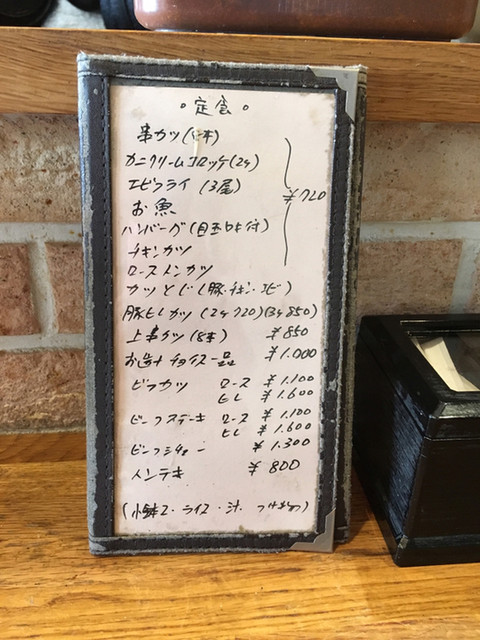 。定食。
串カツ(8本)
カニクリームコロッケ(2ケ)
エビフライ (3尾)
お魚
¥720
ハンバーグ(目玉やき付)
チキンカツ
ローストンカツ
カツとじ(豚・チキン・エビ)
豚ヒレカツ (2ケ720)(3ケ850)
上串カツ(8本) ¥850
お造り+チョイス一品 ¥1.000
ビフカツ ロース ¥1.100
ヒレ ¥1.600
ビーフステーキ ロース ¥1.100
ヒレ ¥1.600
ビーフシチュー ¥1.300
トンテキ ¥800
(小鉢2・ライス・汁・つけもの)